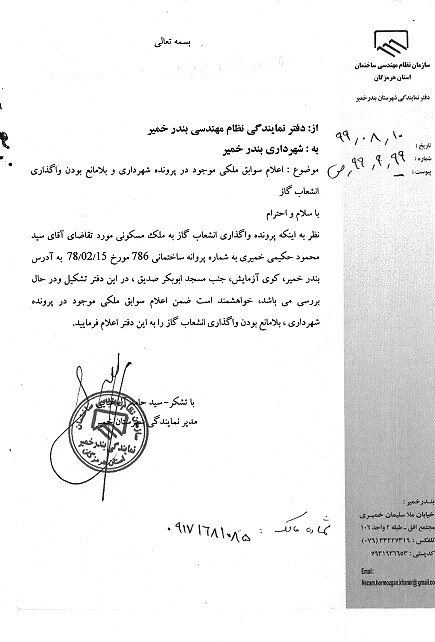 بسمه تعالی
سازمان نظام مهندسی ساختمان
استان هرمزگان
دفتر نمایندگی شهرستان بندر خمیر
تاریخ : ۹۹٫۰۸٫۱۰
شماره : ۹۹٫۹٫۹۹٫ص
پیوست :
از: دفتر نمایندگی نظام مهندسی بندر خمیر
به : شهرداری بندر خمیر
موضوع : اعلام سوابق ملکی موجود در پرونده شهرداری و بلامانع بودن واگذاری
انشعاب گاز
با سلام و احترام
نظر به اینکه پرونده واگذاری انشعاب گاز به ملک مسکونی مورد تقاضای آقای سید
محمود حکیمی خمیری به شماره پروانه ساختمانی 786 مورخ 78/02/15 به آدرس
بندر خمیر، کوی آزمایش، جنب مسجد ابوبکر صدیق ، در این دفتر تشکیل ودر حال
بررسی می باشد، خواهشمند است ضمن اعلام سوابق ملکی موجود در پرونده
شهرداری ، بلامانع بودن واگذاری انشعاب گاز را به این دفتر اعلام فرمایید.
با تشکر – سید
مدیر نمایندگی شهرستان خمیر
سازمان نظام مهندسی ساختمان
نمایندگی بندر خمیر
استان هرمزگان
شماره مالک : ۰۹۱۷۱۶۸۱۰۸۵
بندرخمیر :
خیابان ملا سلیمان خمیری
مجتمع افق - طبقه ۲ واحد ۱۰۶
تلفکس : ۳۳۲۲۷۳۱۹ (۰۷۶)
کدپستی : ۷۹۳۱۹۳۶۶۵۳
Email:
Nezam.hormozgan.khamir@gmail.co